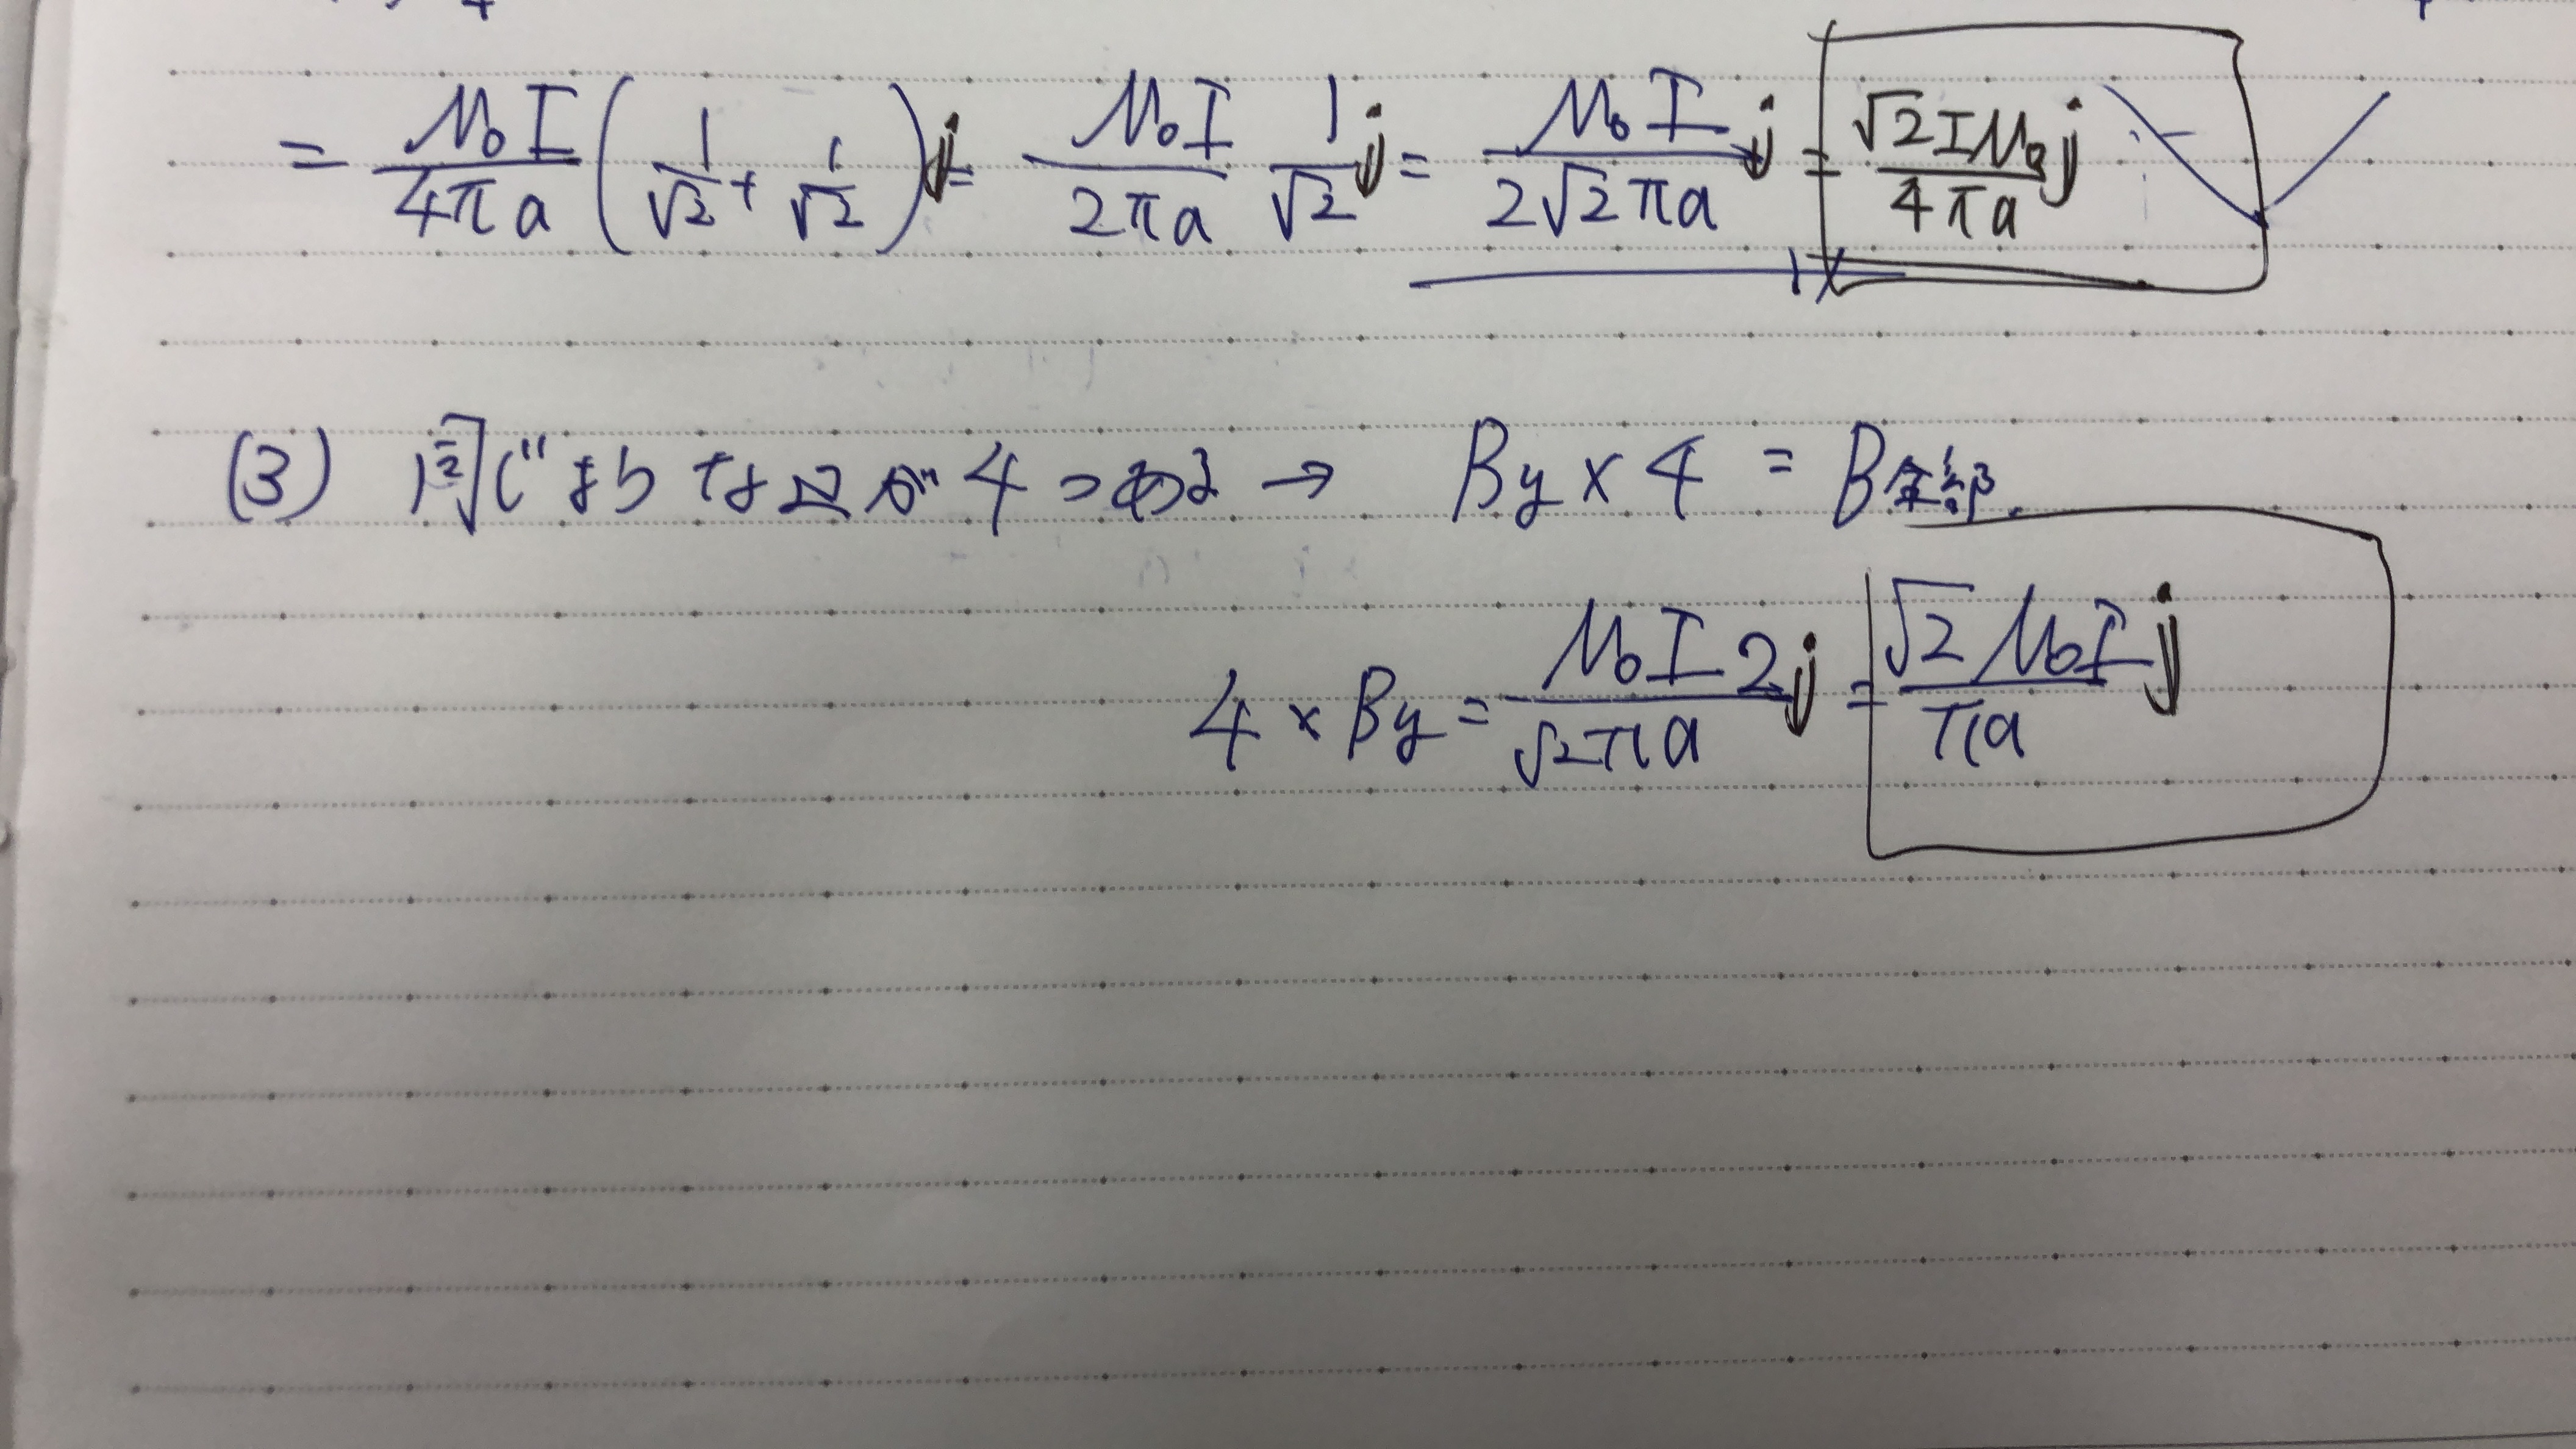 = μ₀I/4πa (1/√2 + 1/√2) j = μ₀I/2πa 1/√2 j = μ₀I/2√2πa j = √2Iμ₀/4πa j
(3) 同じようなコが4つある → By × 4 = B全部.
4 × By = μ₀I2/√2πa j = √2μ₀I/πa j